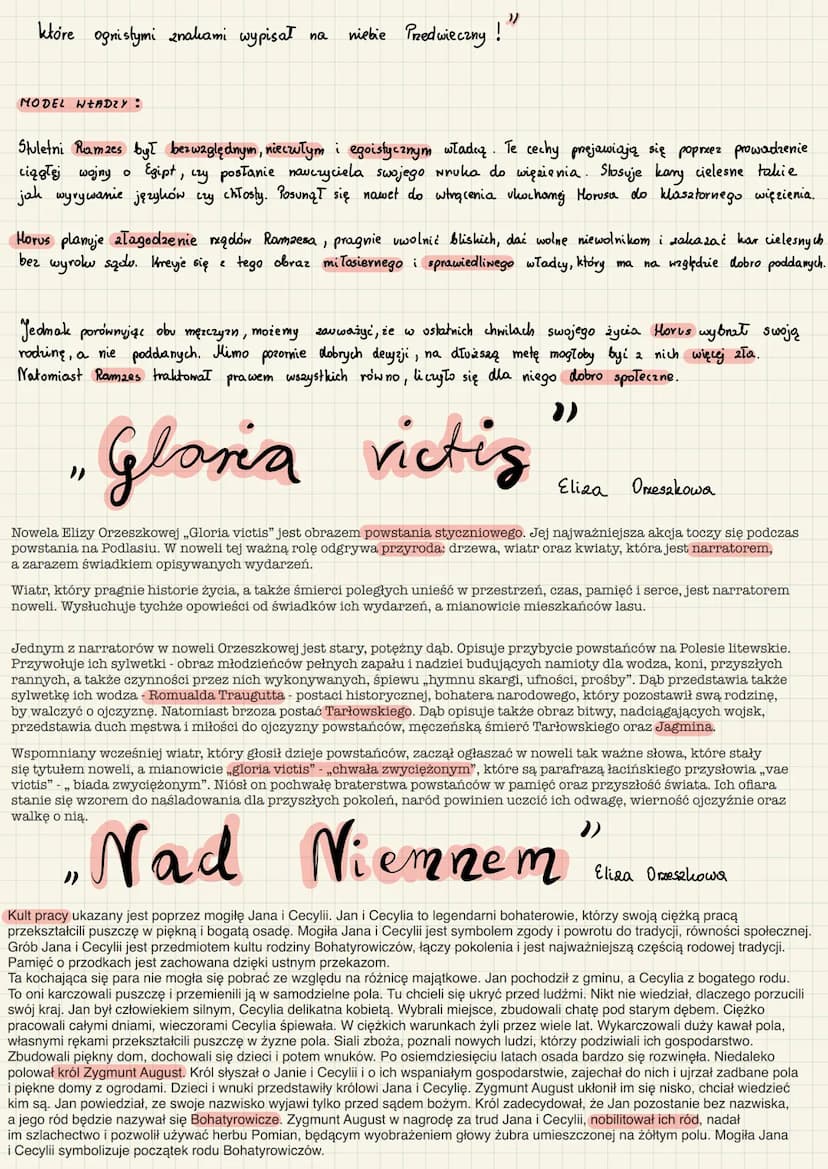 które ognistymi znakami wypisał na niebie Przedwieczny !”
MODEL WŁADZY :
Stuletni Ramzes był bezwzględnym, nieczułym i egoistycznym władcą. Te cechy przejawiają się poprzez prowadzenie
ciągłej wojny o Egipt, czy posłanie nauczyciela swojego wnuka do więzienia. Stosuje kary cielesne takie
jak wyrywanie języków czy chłosty. Posunął się nawet do wtrącenia ukochanej Horusa do klasztornego więzienia.
Horus planuje złagodzenie rządów Ramzesa, pragnie uwolnić bliskich, dać wolnę niewolnikom i zakazać kar cielesnych
bez wyroku sądu. Kreuje się z tego obraz miłosiernego i sprawiedliwego władcy, który ma na względzie dobro poddanych.
Jednak porównując obu mężczyzn, możemy zauważyć, że w ostatnich chwilach swojego życia Horus wybrał swoją
rodzinę, a nie poddanych. Mimo pozornie dobrych decyzji, na dłuższą metę mogłoby być z nich więcej zła.
Natomiast Ramzes traktował prawem wszystkich równo, liczyło się dla niego dobro społeczne.
„Gloria victis”
Eliza Orzeszkowa
Nowela Elizy Orzeszkowej „Gloria victis” jest obrazem powstania styczniowego. Jej najważniejsza akcja toczy się podczas
powstania na Podlasiu. W noweli tej ważną rolę odgrywa przyroda: drzewa, wiatr oraz kwiaty, która jest narratorem,
a zarazem świadkiem opisywanych wydarzeń.
Wiatr, który pragnie historie życia, a także śmierci poległych unieść w przestrzeń, czas, pamięć i serce, jest narratorem
noweli. Wysłuchuje tychże opowieści od świadków ich wydarzeń, a mianowicie mieszkańców lasu.
Jednym z narratorów w noweli Orzeszkowej jest stary, potężny dąb. Opisuje przybycie powstańców na Polesie litewskie.
Przywołuje ich sylwetki - obraz młodzieńców pełnych zapału i nadziei budujących namioty dla wodza, koni, przyszłych
rannych, a także czynności przez nich wykonywanych, śpiewu „hymnu skargi, ufności, prośby”. Dąb przedstawia także
sylwetkę ich wodza - Romualda Traugutta - postaci historycznej, bohatera narodowego, który pozostawił swą rodzinę,
by walczyć o ojczyznę. Natomiast brzoza postać Tarłowskiego. Dąb opisuje także obraz bitwy, nadciągających wojsk,
przedstawia duch męstwa i miłości do ojczyzny powstańców, męczeńską śmierć Tarłowskiego oraz Jagmina.
Wspomniany wcześniej wiatr, który głosił dzieje powstańców, zaczął ogłaszać w noweli tak ważne słowa, które stały
się tytułem noweli, a mianowicie „gloria victis” - „chwała zwyciężonym”, które są parafrazą łacińskiego przysłowia „vae
victis” - „ biada zwyciężonym”. Niósł on pochwałę braterstwa powstańców w pamięć oraz przyszłość świata. Ich ofiara
stanie się wzorem do naśladowania dla przyszłych pokoleń, naród powinien uczcić ich odwagę, wierność ojczyźnie oraz
walkę o nią.
„Nad Niemnem”
Eliza Orzeszkowa
Kult pracy ukazany jest poprzez mogiłę Jana i Cecylii. Jan i Cecylia to legendarni bohaterowie, którzy swoją ciężką pracą
przekształcili puszczę w piękną i bogatą osadę. Mogiła Jana i Cecylii jest symbolem zgody i powrotu do tradycji, równości społecznej.
Grób Jana i Cecylii jest przedmiotem kultu rodziny Bohatyrowiczów, łączy pokolenia i jest najważniejszą częścią rodowej tradycji.
Pamięć o przodkach jest zachowana dzięki ustnym przekazom.
Ta kochająca się para nie mogła się pobrać ze względu na różnicę majątkowe. Jan pochodził z gminu, a Cecylia z bogatego rodu.
To oni karczowali puszczę i przemienili ją w samodzielne pola. Tu chcieli się ukryć przed ludźmi. Nikt nie wiedział, dlaczego porzucili
swój kraj. Jan był człowiekiem silnym, Cecylia delikatna kobietą. Wybrali miejsce, zbudowali chatę pod starym dębem. Ciężko
pracowali całymi dniami, wieczorami Cecylia śpiewała. W ciężkich warunkach żyli przez wiele lat. Wykarczowali duży kawał pola,
własnymi rękami przekształcili puszczę w żyzne pola. Siali zboża, poznali nowych ludzi, którzy podziwiali ich gospodarstwo.
Zbudowali piękny dom, dochowali się dzieci i potem wnuków. Po osiemdziesięciu latach osada bardzo się rozwinęła. Niedaleko
polował król Zygmunt August. Król słyszał o Janie i Cecylii i o ich wspaniałym gospodarstwie, zajechał do nich i ujrzał zadbane pola
i piękne domy z ogrodami. Dzieci i wnuki przedstawiły królowi Jana i Cecylię. Zygmunt August ukłonił im się nisko, chciał wiedzieć
kim są. Jan powiedział, ze swoje nazwisko wyjawi tylko przed sądem bożym. Król zadecydował, że Jan pozostanie bez nazwiska,
a jego ród będzie nazywał się Bohatyrowicze. Zygmunt August w nagrodę za trud Jana i Cecylii, nobilitował ich ród, nadał
im szlachectwo i pozwolił używać herbu Pomian, będącym wyobrażeniem głowy żubra umieszczonej na żółtym polu. Mogiła Jana
i Cecylii symbolizuje początek rodu Bohatyrowiczów.